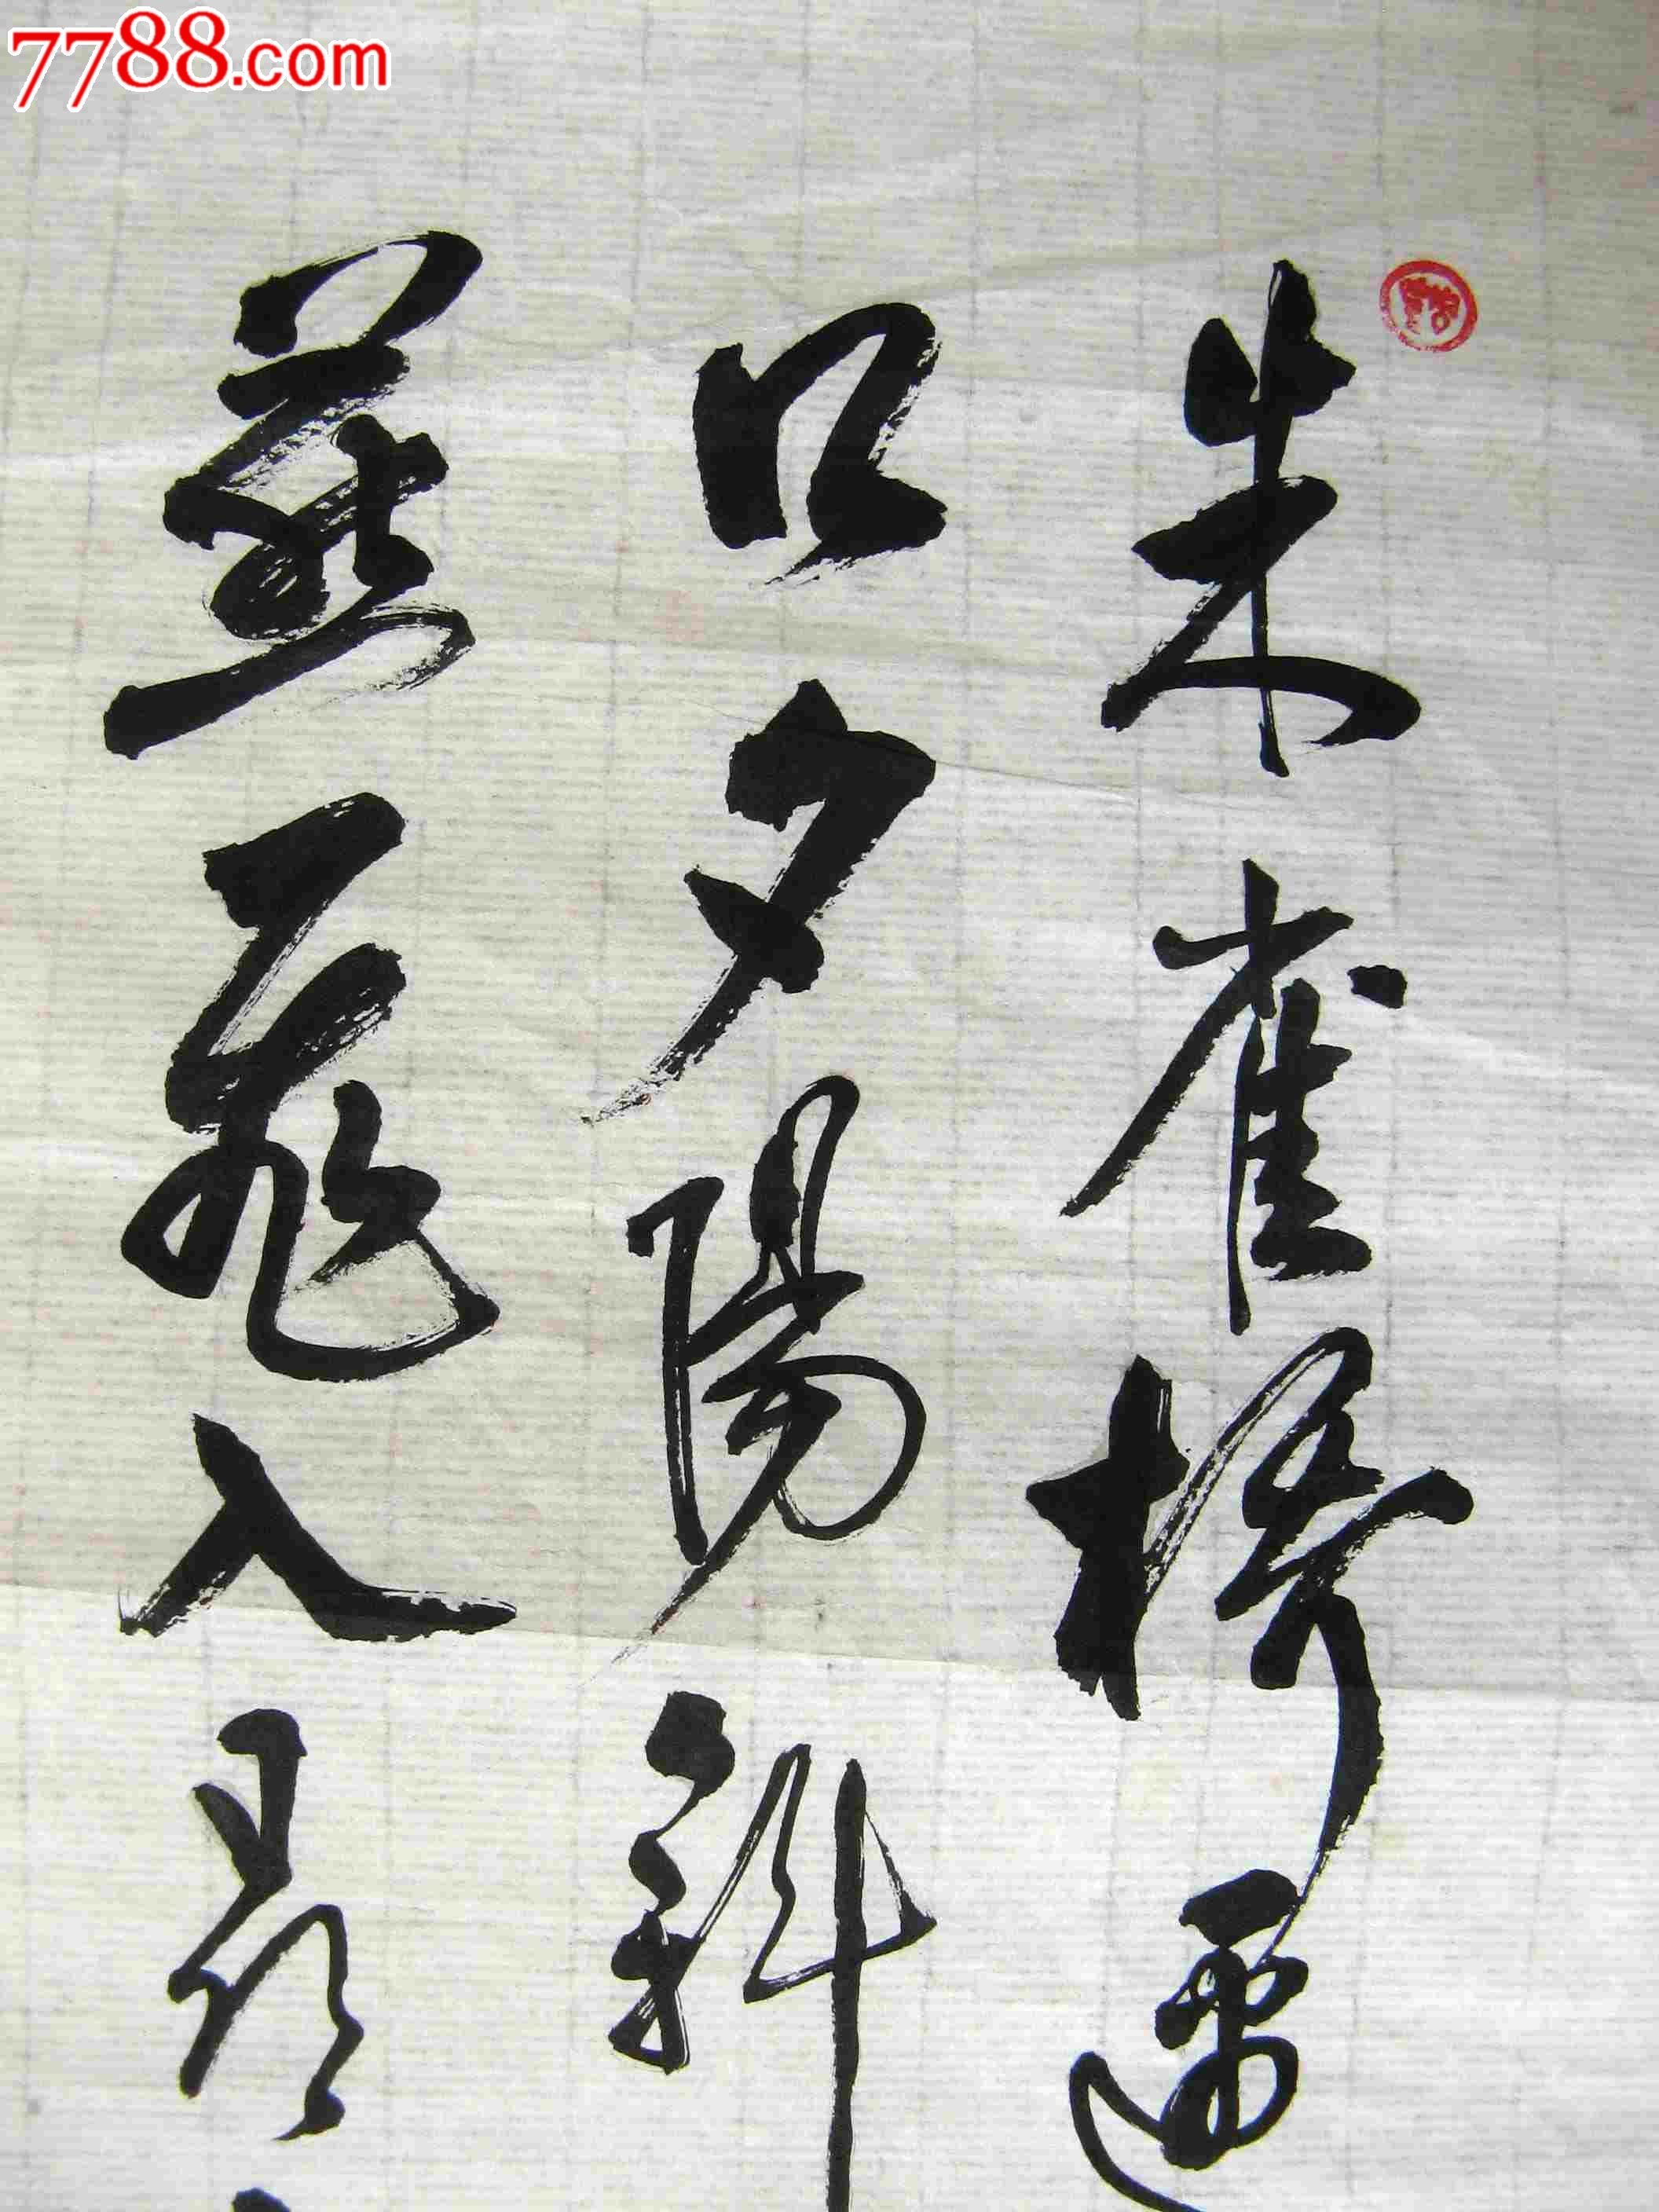 7788.com
朱雀橋邊
口夕陽斜
燕飛入尋